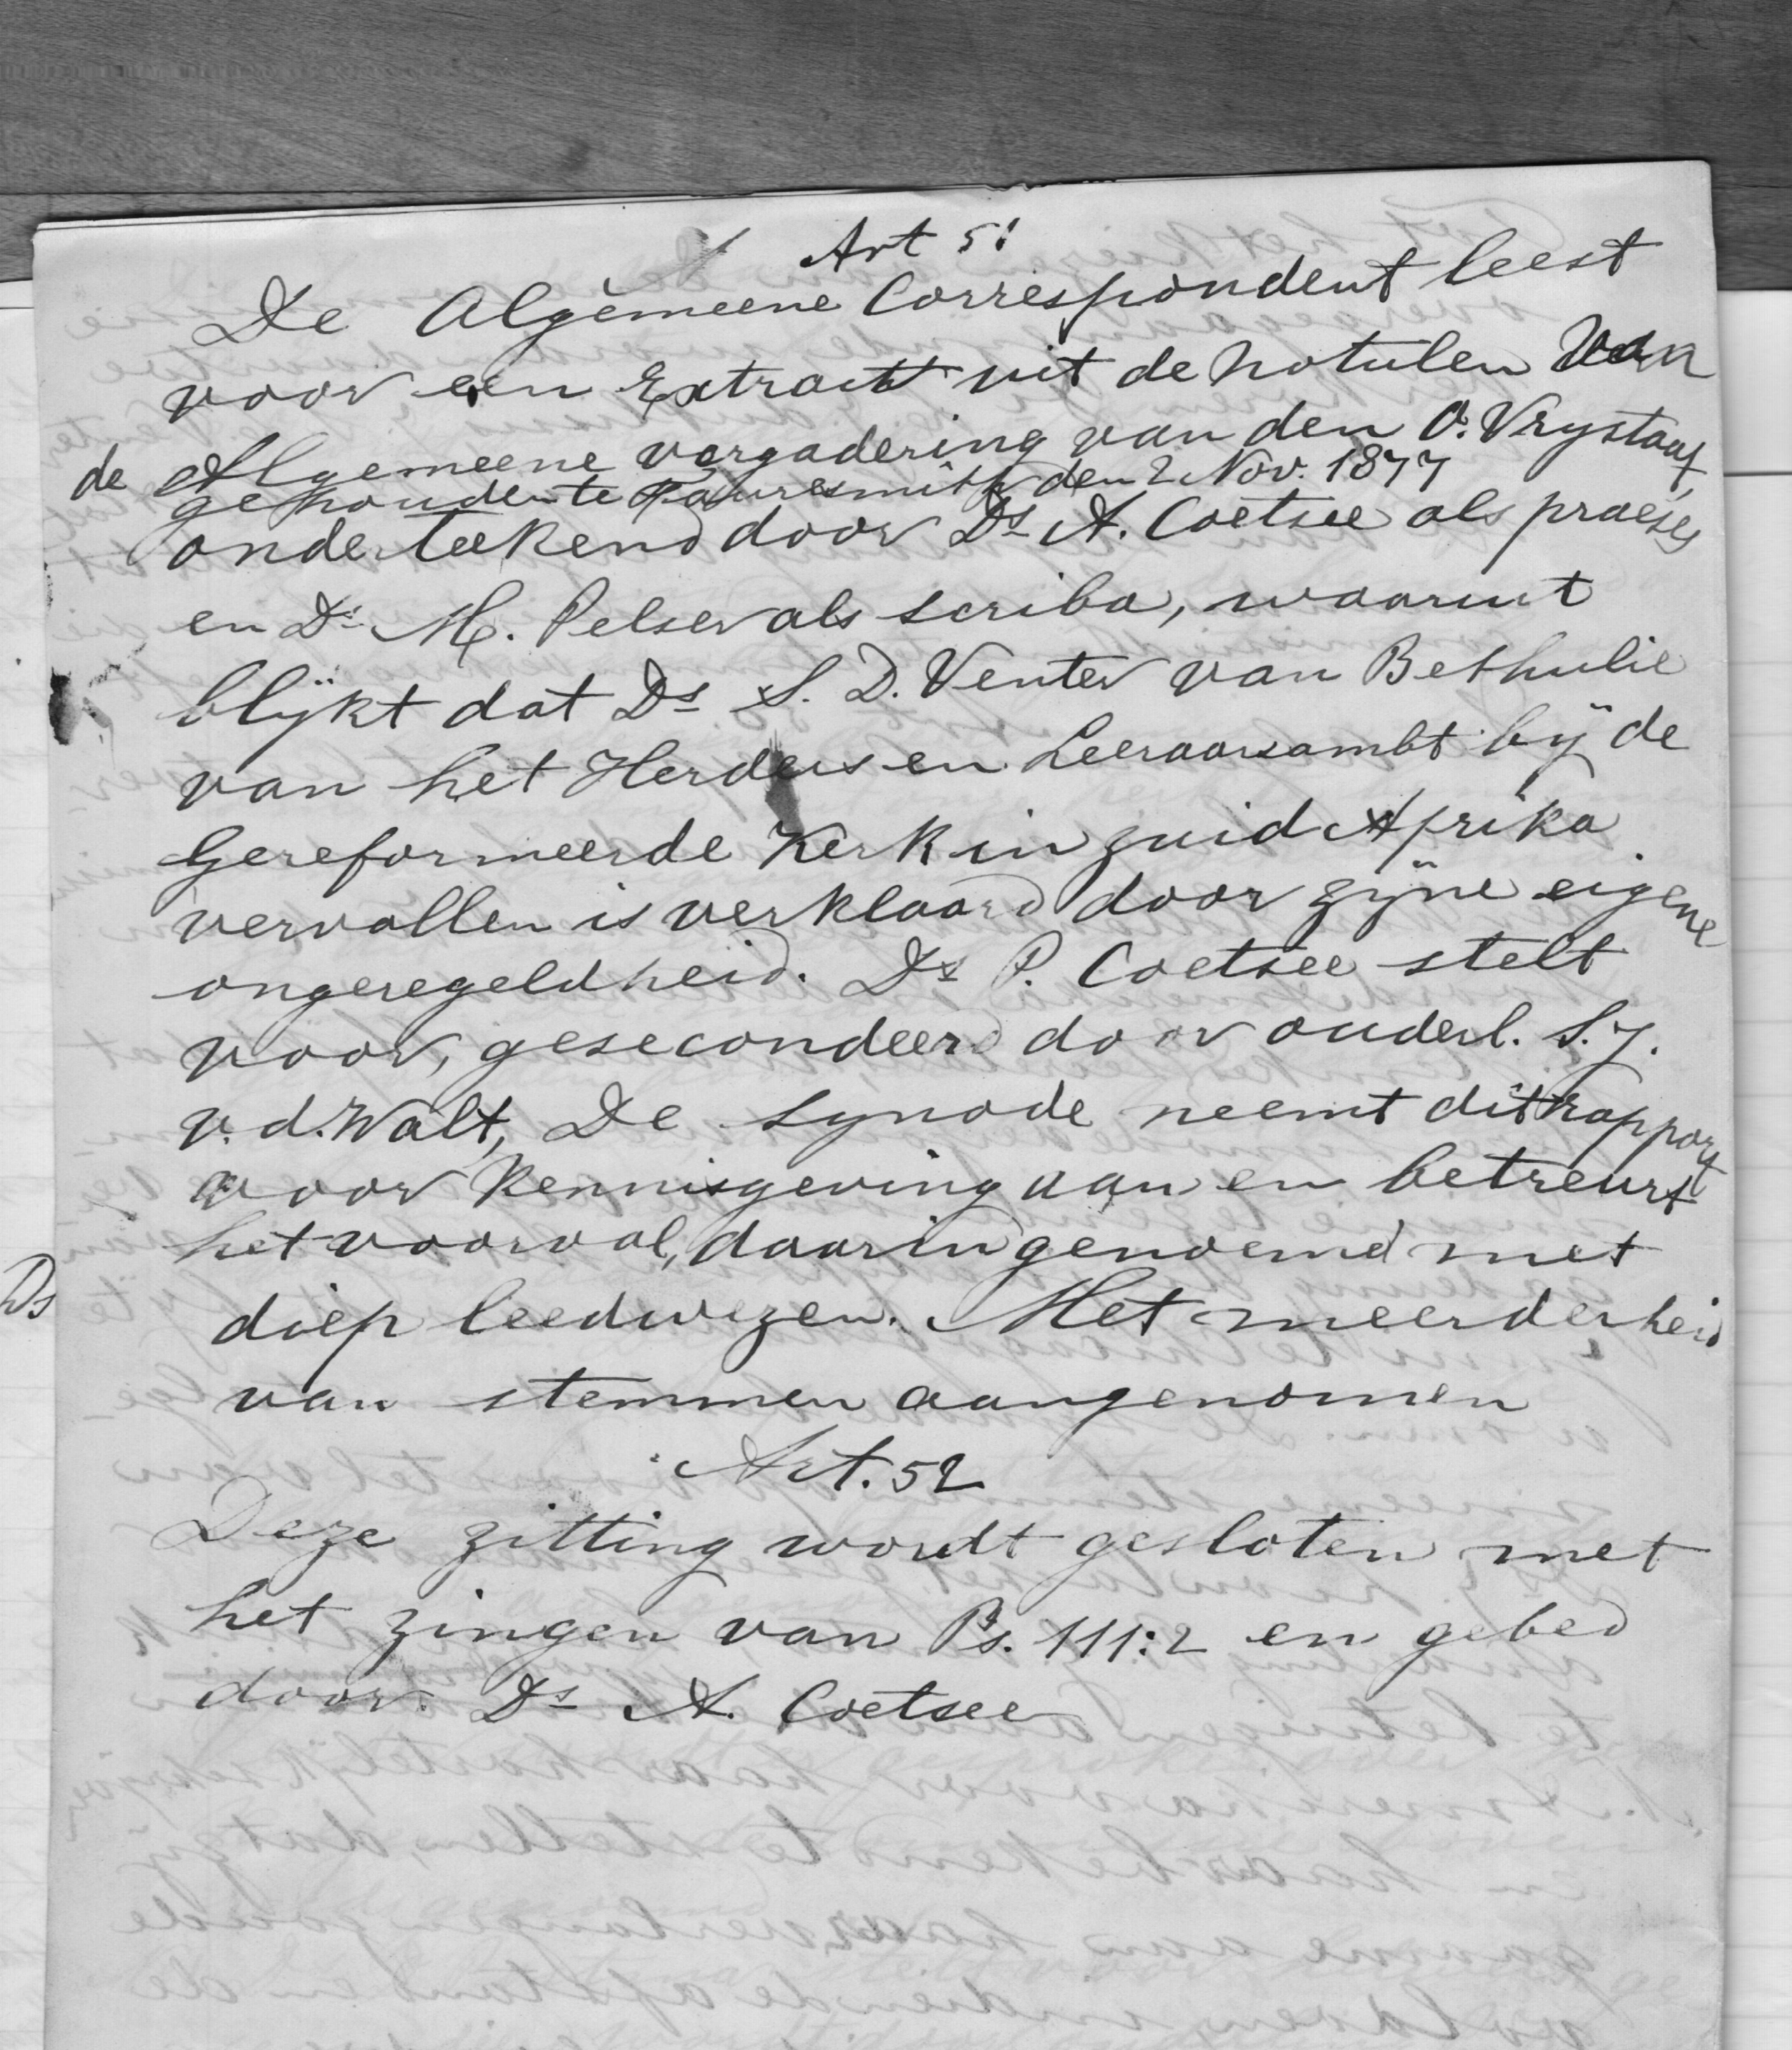 Art 51
De Algemeene Correspondent leest
voor een Extract uit de notulen van
de Algemeene vergadering van den O. Vrystaat,
gehouden te Fauresmith den 2 Nov. 1877
onderteekend door Ds A. Coetsee als praeses
en Ds M. Pelser als scriba, waaruit
blijkt dat Ds S. D. Venter van Bethulie
van het Herders en Leeraarsambt bij de
Gereformeerde Kerk in Zuid Afrika
vervallen is verklaard door zijne eigene
ongeregeldheid. Ds P. Coetsee stelt
voor, gesecondeerd door ouderl. S. J.
v. d. Walt, De synode neemt dit rapport
voor kennisgeving aan en betreurt
het voorval, daarin genoemd met
Ds
diep leedwezen. Met meerderheid
van stemmen aangenomen
Art. 52
Deze zitting wordt gesloten met
het zingen van Ps. 111:2 en gebed
door Ds A. Coetsee